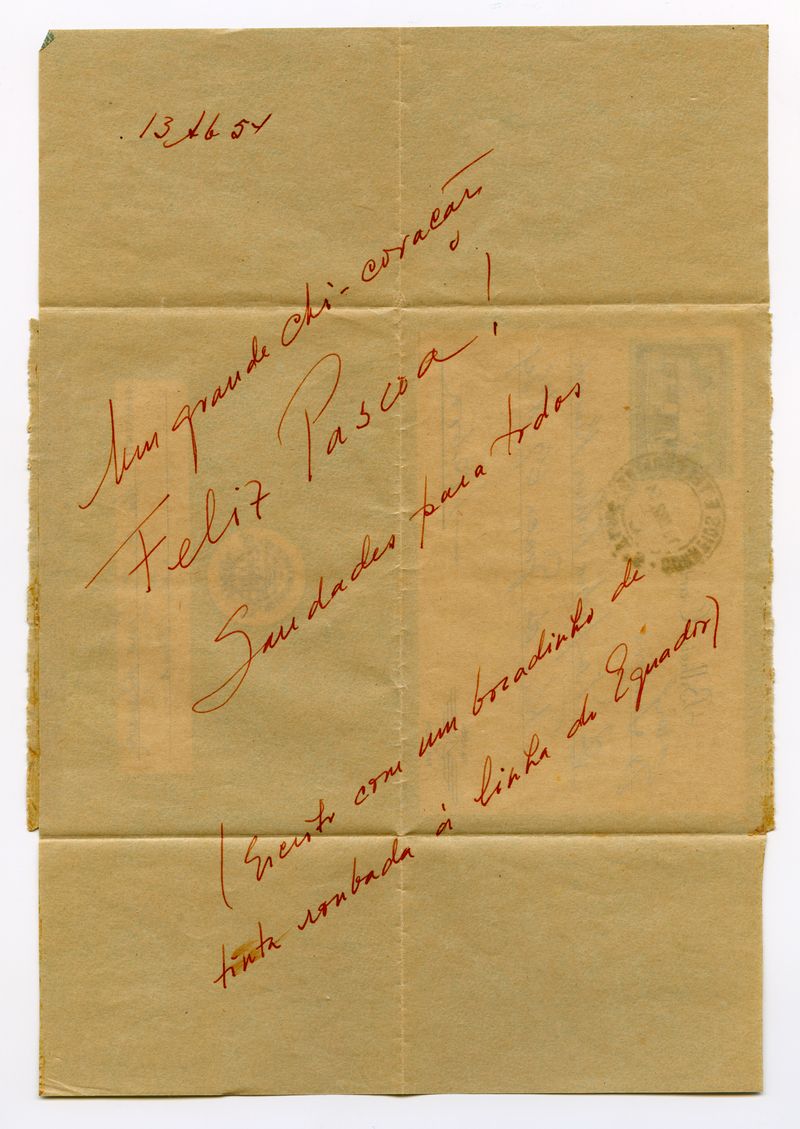 13 Ab 54
Um grande chi-coração
Feliz Pascoa!
Saudades para todos
(Escrito com um bocadinho de
tinta roubada á linha do Equador)